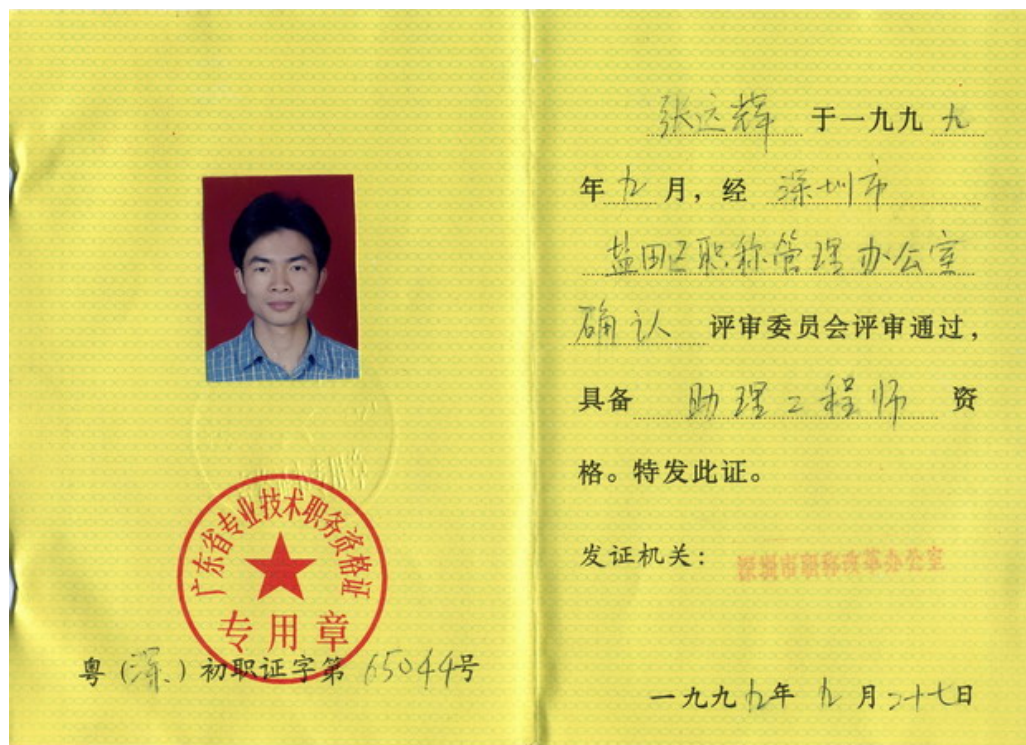 广东省专业技术职务资格证
专用章
粤（深）初职证字第65044号
张远辉 于一九九九
年九月，经 深圳市
盐田区职称管理办公室
确认 评审委员会评审通过，
具备 助理工程师 资
格。特发此证。
发证机关：
一九九九年九月二十七日